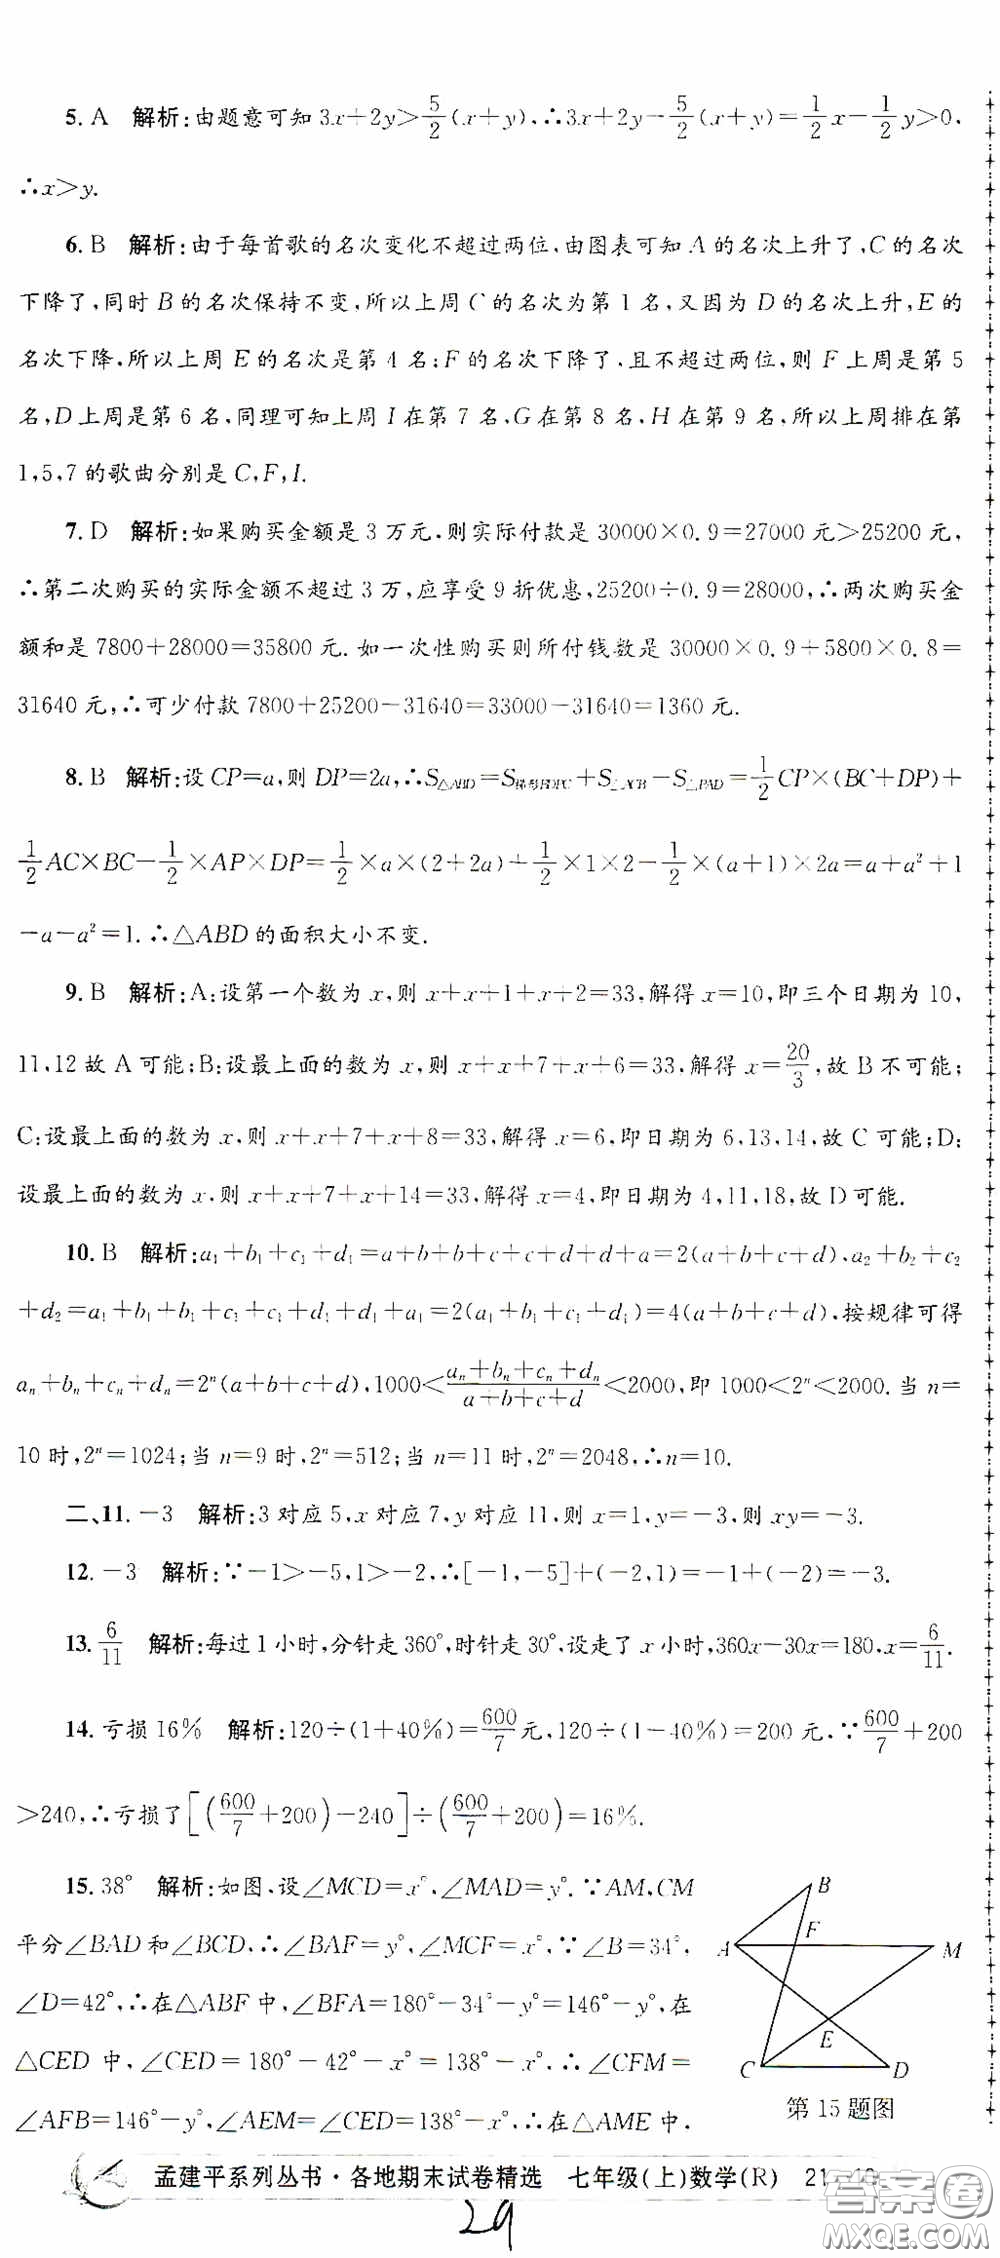 5. A 解析:由题意可知 3x+2y>5/2(x+y),∴3x+2y-5/2(x+y)=1/2x-1/2y>0,
∴x>y.
6. B 解析:由于每首歌的名次变化不超过两位,由图表可知 A 的名次上升了,C 的名次
下降了,同时 B 的名次保持不变,所以上周 C 的名次为第 1 名,又因为 D 的名次上升,E 的
名次下降,所以上周 E 的名次是第 4 名;F 的名次下降了,且不超过两位,则 F 上周是第 5
名,D 上周是第 6 名,同理可知上周 I 在第 7 名,G 在第 8 名,H 在第 9 名,所以上周排在第
1,5,7 的歌曲分别是 C,F,I.
7. D 解析:如果购买金额是 3 万元,则实际付款是 30000×0.9=27000 元>25200 元,
∴第二次购买的实际金额不超过 3 万,应享受 9 折优惠,25200÷0.9=28000,∴两次购买金
额和是 7800+28000=35800 元.如一次性购买则所付钱数是 30000×0.9+5800×0.8=
31640 元,∴可少付款 7800+25200-31640=33000-31640=1360 元.
8. B 解析:设 CP=a,则 DP=2a,∴S△ABD=S梯形BDPC+S△ACB-S△PAD=1/2CP×(BC+DP)+
1/2AC×BC-1/2×AP×DP=1/2×a×(2+2a)+1/2×1×2-1/2×(a+1)×2a=a+a²+1
-a-a²=1.∴△ABD 的面积大小不变.
9. B 解析:A:设第一个数为 x,则 x+x+1+x+2=33,解得 x=10,即三个日期为 10,
11,12 故 A 可能;B:设最上面的数为 x,则 x+x+7+x+6=33,解得 x=20/3,故 B 不可能;
C:设最上面的数为 x,则 x+x+7+x+8=33,解得 x=6,即日期为 6,13,14,故 C 可能;D:
设最上面的数为 x,则 x+x+7+x+14=33,解得 x=4,即日期为 4,11,18,故 D 可能.
10. B 解析:a₁+b₁+c₁+d₁=a+b+b+c+c+d+d+a=2(a+b+c+d),a₂+b₂+c₂
+d₂=a₁+b₁+b₁+c₁+c₁+d₁+d₁+a₁=2(a₁+b₁+c₁+d₁)=4(a+b+c+d),按规律可得
aₙ+bₙ+cₙ+dₙ=2ⁿ(a+b+c+d),1000<(aₙ+bₙ+cₙ+dₙ)/(a+b+c+d)<2000,即 1000<2ⁿ<2000.当 n=
10 时,2ⁿ=1024;当 n=9 时,2ⁿ=512;当 n=11 时,2ⁿ=2048,∴n=10.
二、11. -3 解析:3 对应 5,x 对应 7,y 对应 11,则 x=1,y=-3,则 xy=-3.
12. -3 解析:∵-1>-5,1>-2,∴[-1,-5]+(-2,1)=-1+(-2)=-3.
13. 6/11 解析:每过 1 小时,分针走 360°,时针走 30°,设走了 x 小时,360x-30x=180,x=6/11.
14. 亏损 16% 解析:120÷(1+40%)=600/7元,120÷(1-40%)=200 元,∵600/7+200
>240,∴亏损了[(600/7+200)-240]÷(600/7+200)=16%.
15. 38° 解析:如图,设∠MCD=x°,∠MAD=y°.∵AM,CM
平分∠BAD 和∠BCD,∴∠BAF=y°,∠MCF=x°,∵∠B=34°,
∠D=42°,∴在△ABF 中,∠BFA=180°-34°-y°=146°-y°,在
△CED 中,∠CED=180°-42°-x°=138°-x°,∴∠CFM=
∠AFB=146°-y°,∠AEM=∠CED=138°-x°,∴在△AME 中,
B
F
A
M
E
C
D
第 15 题图
孟建平系列丛书·各地期末试卷精选 七年级(上)数学(R)
29
答案圈
MXQE.COM